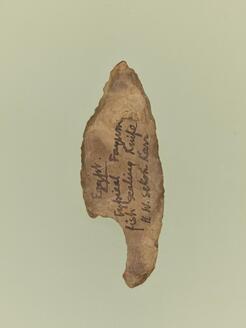 Egypt.
typical Fayum
fish scaling Knife
H. W. Seton Karr